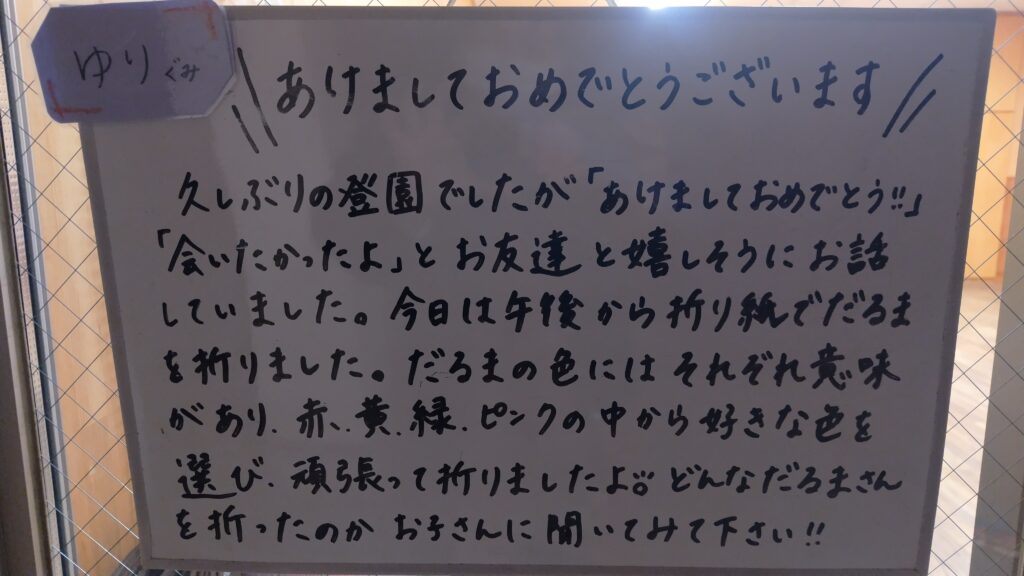 ゆりぐみ
あけましておめでとうございます
久しぶりの登園でしたが「あけましておめでとう!!」
「会いたかったよ」とお友達と嬉しそうにお話
していました。今日は午後から折り紙でだるま
を折りました。だるまの色にはそれぞれ意味
があり、赤、黄、緑、ピンクの中から好きな色を
選び、頑張って折りましたよ。どんなだるまさん
を折ったのかお子さんに聞いてみて下さい!!